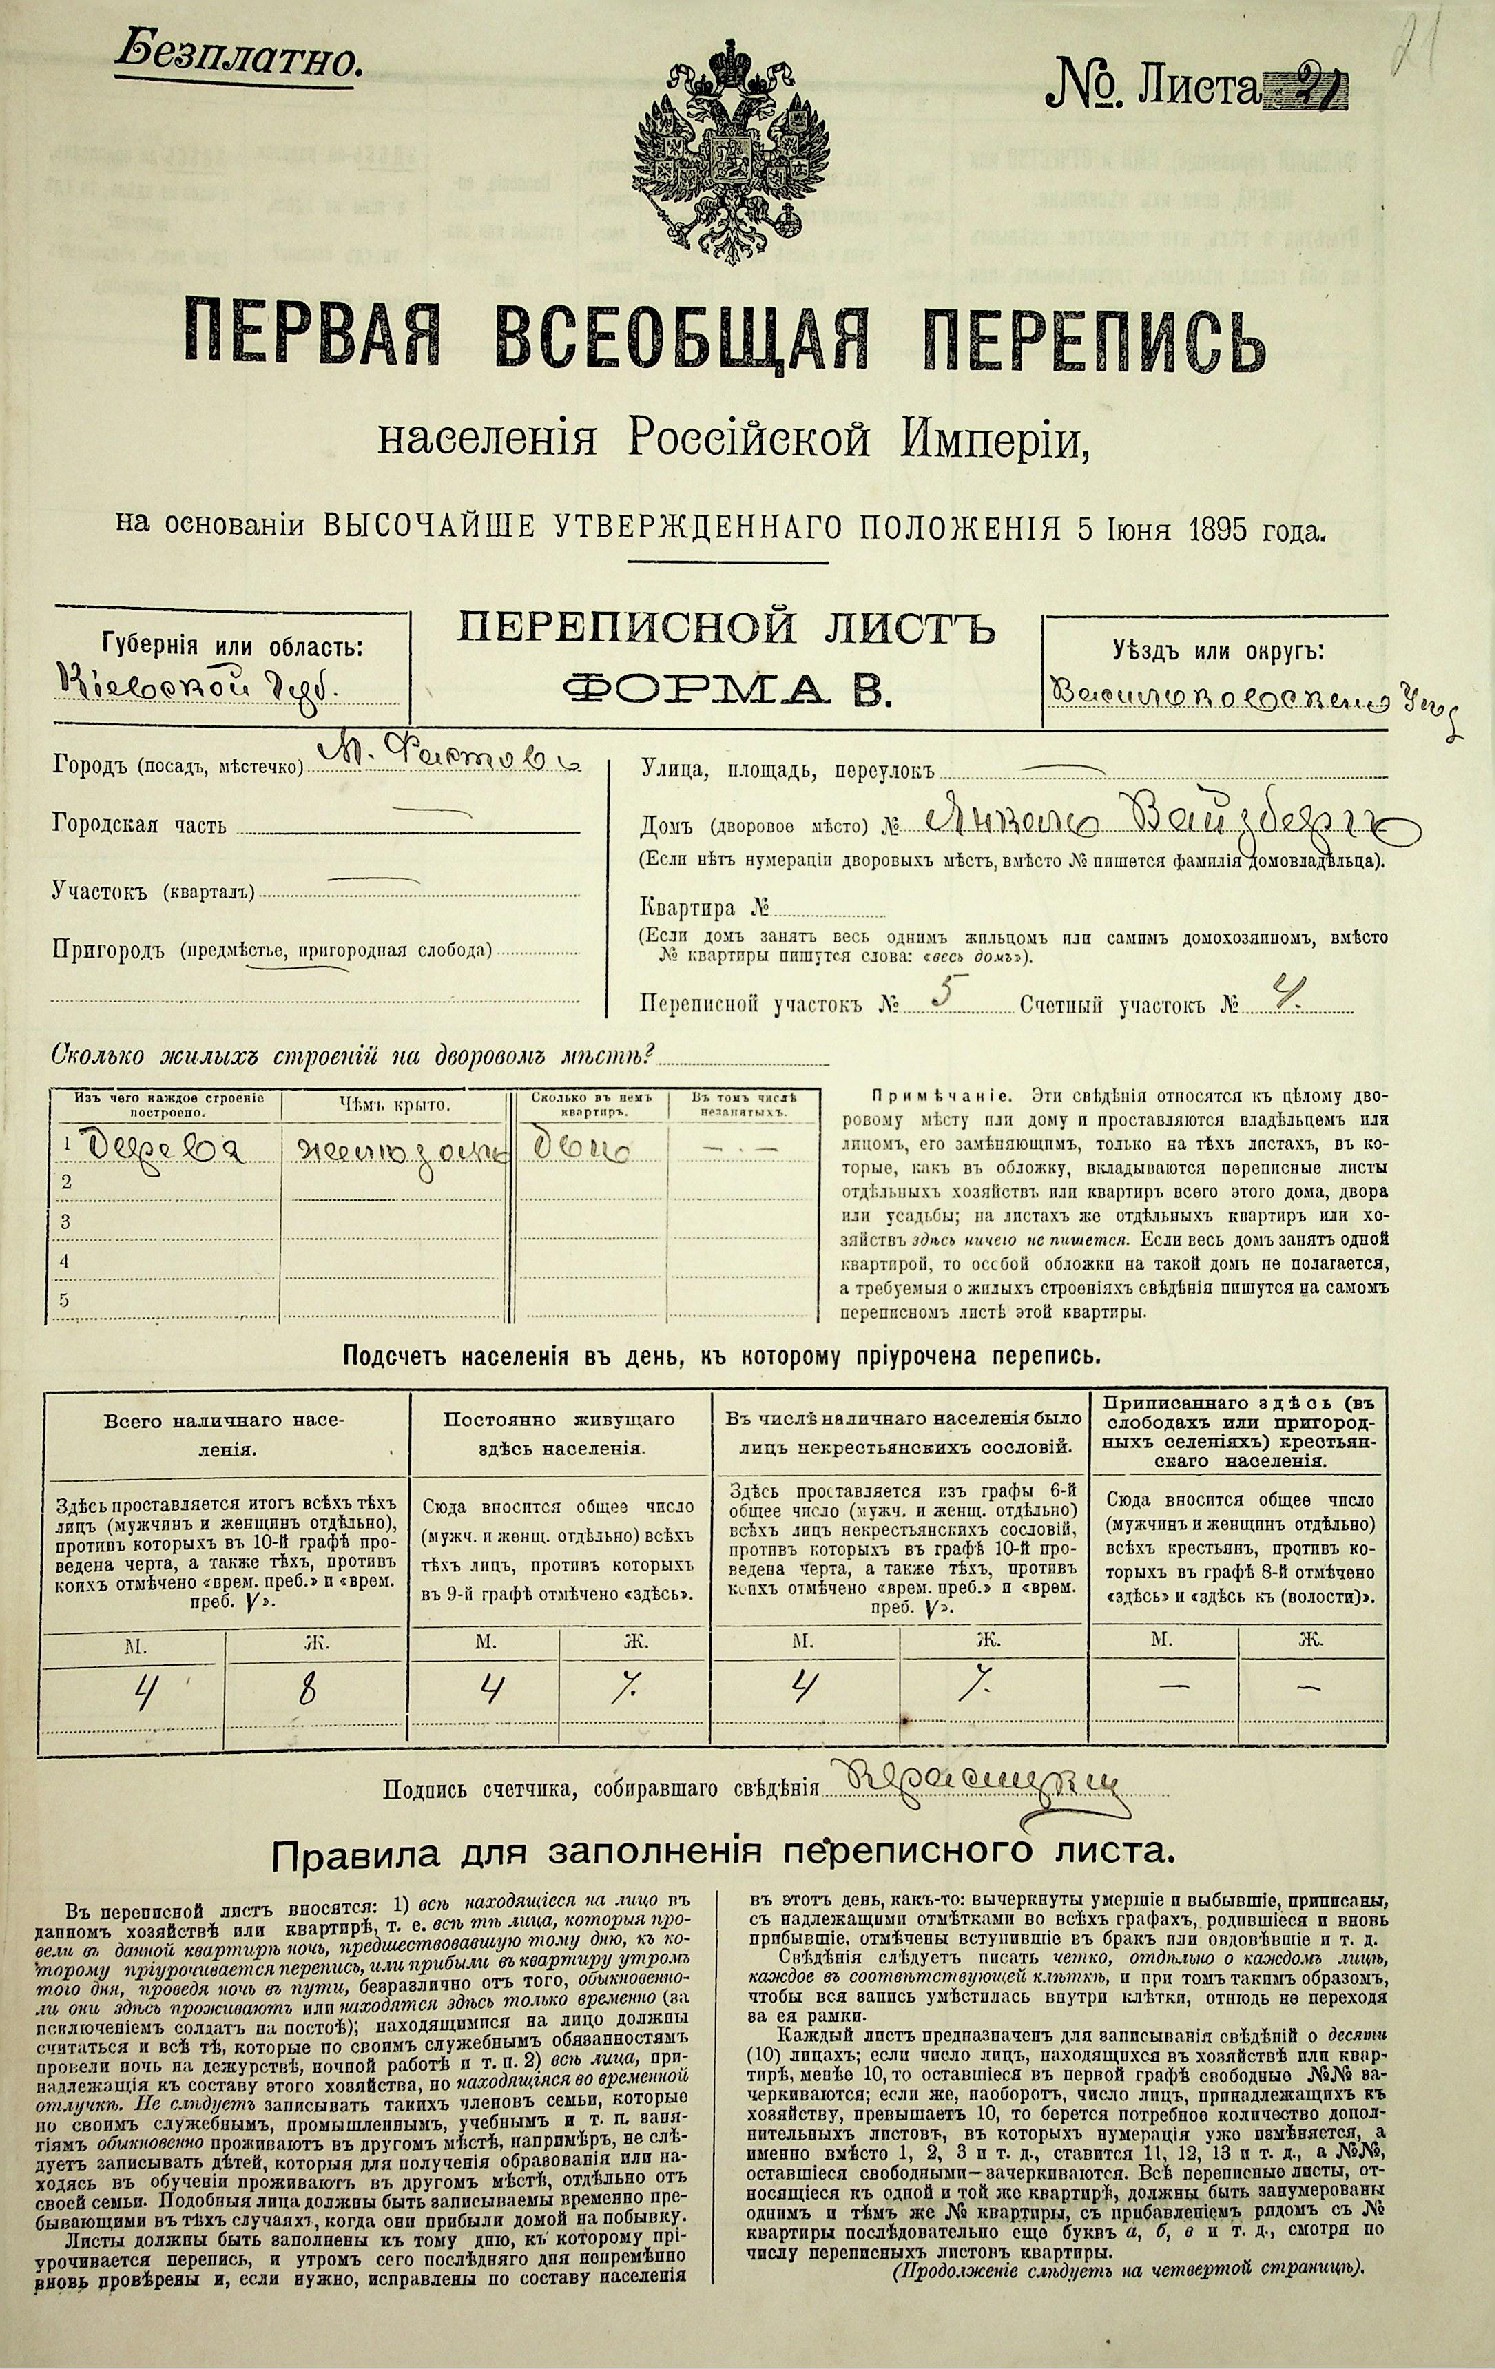 Безплатно.
№. Листа 21
21
ПЕРВАЯ ВСЕОБЩАЯ ПЕРЕПИСЬ
населенія Россійской Имперіи,
на основаніи ВЫСОЧАЙШЕ УТВЕРЖДЕННАГО ПОЛОЖЕНІЯ 5 Іюня 1895 года.
Губернія или область:
Кіевской Губ.
ПЕРЕПИСНОЙ ЛИСТЪ
ФОРМА В.
Уѣздъ или округъ:
Васильковскаго Уѣз
Городъ (посадъ, мѣстечко) М. Фастовъ
Городская часть —
Участокъ (кварталъ) —
Пригородъ (предмѣстье, пригородная слобода)
Улица, площадь, переулокъ —
Домъ (дворовое мѣсто) № Янкель Вайзбергъ
(Если нѣтъ нумераціи дворовыхъ мѣстъ, вмѣсто № пишется фамилія домовладѣльца).
Квартира №
(Если домъ занятъ весь однимъ жильцомъ или самимъ домохозяиномъ, вмѣсто
№ квартиры пишутся слова: «весь домъ»).
Переписной участокъ № 5 Счетный участокъ № 4.
Сколько жилыхъ строеній на дворовомъ мѣстѣ?
Изъ чего каждое строеніе
построено.
Чѣмъ крыто.
Сколько въ немъ
квартиръ.
Въ томъ числѣ
незанятыхъ.
1 Дерева желѣзомъ двѣ — . —
2
3
4
5
Примѣчаніе. Эти свѣдѣнія относятся къ цѣлому дво-
ровому мѣсту или дому и проставляются владѣльцемъ или
лицомъ, его замѣняющимъ, только на тѣхъ листахъ, въ ко-
торые, какъ въ обложку, вкладываются переписные листы
отдѣльныхъ хозяйствъ или квартиръ всего этого дома, двора
или усадьбы; на листахъ же отдѣльныхъ квартиръ или хо-
зяйствъ здѣсь ничего не пишется. Если весь домъ занятъ одной
квартирой, то особой обложки на такой домъ не полагается,
а требуемыя о жилыхъ строеніяхъ свѣдѣнія пишутся на самомъ
переписномъ листѣ этой квартиры.
Подсчетъ населенія въ день, къ которому пріурочена перепись.
Всего наличнаго насе-
ленія.
Постоянно живущаго
здѣсь населенія.
Въ числѣ наличнаго населенія было
лицъ некрестьянскихъ сословій.
Приписаннаго здѣсь (въ
слободахъ или пригород-
ныхъ селеніяхъ) крестьян-
скаго населенія.
Здѣсь проставляется итогъ всѣхъ тѣхъ
лицъ (мужчинъ и женщинъ отдѣльно),
противъ которыхъ въ 10-й графѣ про-
ведена черта, а также тѣхъ, противъ
коихъ отмѣчено «врем. преб.» и «врем.
преб. V».
Сюда вносится общее число
(мужч. и женщ. отдѣльно) всѣхъ
тѣхъ лицъ, противъ которыхъ
въ 9-й графѣ отмѣчено «здѣсь».
Здѣсь проставляется изъ графы 6-й
общее число (мужч. и женщ. отдѣльно)
всѣхъ лицъ некрестьянскихъ сословій,
противъ которыхъ въ графѣ 10-й про-
ведена черта, а также тѣхъ, противъ
коихъ отмѣчено «врем. преб.» и «врем.
преб. V».
Сюда вносится общее число
(мужчинъ и женщинъ отдѣльно)
всѣхъ крестьянъ, противъ ко-
торыхъ въ графѣ 8-й отмѣчено
«здѣсь» и «здѣсь къ (волости)».
М. Ж. М. Ж. М. Ж. М. Ж.
4 8 4 7. 4 7. — —
Подпись счетчика, собиравшаго свѣдѣнія Красицкій
Правила для заполненія переписного листа.
Въ переписной листъ вносятся: 1) всѣ находящіеся на лицо въ
данномъ хозяйствѣ или квартирѣ, т. е. всѣ тѣ лица, которыя про-
вели въ данной квартирѣ ночь, предшествовавшую тому дню, къ ко-
торому пріурочивается перепись, или прибыли въ квартиру утромъ
того дня, проведя ночь въ пути, безразлично отъ того, обыкновенно-
ли они здѣсь проживаютъ или находятся здѣсь только временно (за
исключеніемъ солдатъ на постоѣ); находящимися на лицо должны
считаться и всѣ тѣ, которые по своимъ служебнымъ обязанностямъ
провели ночь на дежурствѣ, ночной работѣ и т. п. 2) всѣ лица, при-
надлежащія къ составу этого хозяйства, но находящіяся во временной
отлучкѣ. Не слѣдуетъ записывать такихъ членовъ семьи, которые
по своимъ служебнымъ, промышленнымъ, учебнымъ и т. п. заня-
тіямъ обыкновенно проживаютъ въ другомъ мѣстѣ, напримѣръ, не слѣ-
дуетъ записывать дѣтей, которыя для полученія образованія или на-
ходясь въ обученіи проживаютъ въ другомъ мѣстѣ, отдѣльно отъ
своей семьи. Подобныя лица должны быть записываемы временно пре-
бывающими въ тѣхъ случаяхъ, когда они прибыли домой на побывку.
Листы должны быть заполнены къ тому дню, къ которому прі-
урочивается перепись, и утромъ сего послѣдняго дня непремѣнно
вновь провѣрены и, если нужно, исправлены по составу населенія
въ этотъ день, какъ-то: вычеркнуты умершіе и выбывшіе, приписаны,
съ надлежащими отмѣтками во всѣхъ графахъ, родившіеся и вновь
прибывшіе, отмѣчены вступившіе въ бракъ или овдовѣвшіе и т. д.
Свѣдѣнія слѣдуетъ писать четко, отдѣльно о каждомъ лицѣ,
каждое въ соотвѣтствующей клѣткѣ, и при томъ такимъ образомъ,
чтобы вся запись умѣстилась внутри клѣтки, отнюдь не переходя
за ея рамки.
Каждый листъ предназначенъ для записыванія свѣдѣній о десяти
(10) лицахъ; если число лицъ, находящихся въ хозяйствѣ или квар-
тирѣ, менѣе 10, то оставшіеся въ первой графѣ свободные №№ за-
черкиваются; если же, наоборотъ, число лицъ, принадлежащихъ къ
хозяйству, превышаетъ 10, то берется потребное количество допол-
нительныхъ листовъ, въ которыхъ нумерація уже измѣняется, а
именно вмѣсто 1, 2, 3 и т. д., ставится 11, 12, 13 и т. д., а №№,
оставшіеся свободными—зачеркиваются. Всѣ переписные листы, от-
носящіеся къ одной и той же квартирѣ, должны быть занумерованы
однимъ и тѣмъ же № квартиры, съ прибавленіемъ рядомъ съ №
квартиры послѣдовательно еще буквъ а, б, в и т. д., смотря по
числу переписныхъ листовъ квартиры.
(Продолженіе слѣдуетъ на четвертой страницѣ).